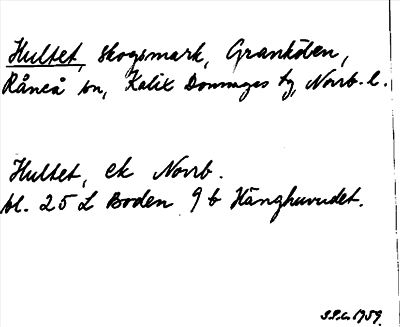 Hultet, skogsmark, Granköten,
Råneå sn, Kalix Domsagas tg, Norrb. l.
Hultet, ek Norrb.
bl. 25 L Boden 9 b Hänghuvudet.
S.S.G. 1959.